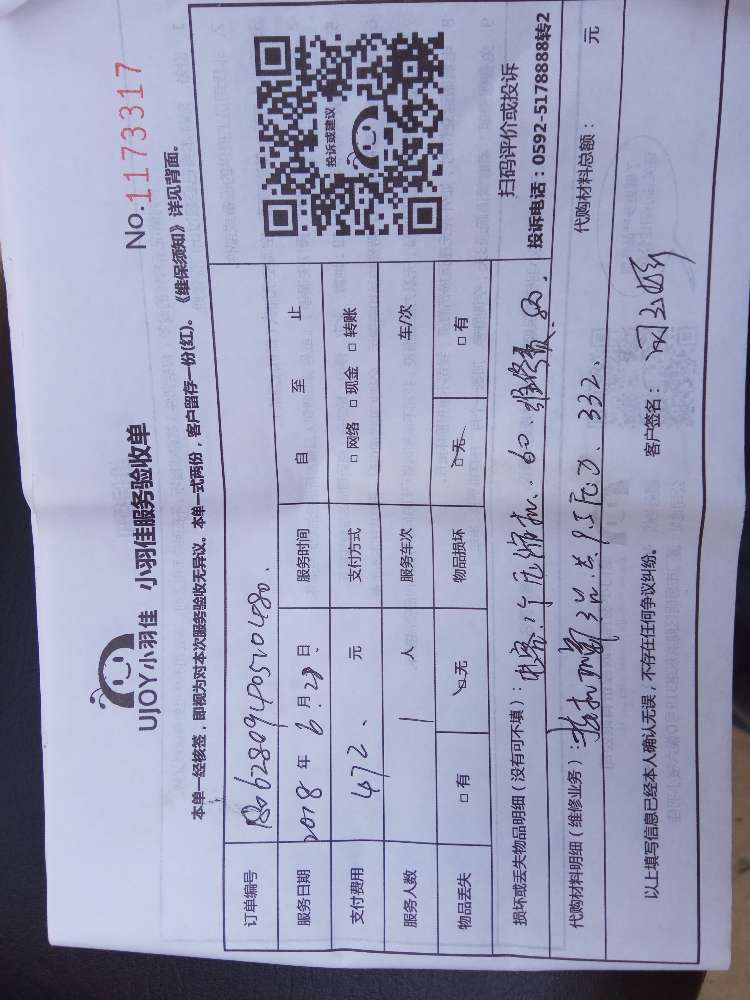 UJOY小羽佳 小羽佳服务验收单
No.1173317
本单一经核签，即视为对本次服务验收无异议。本单一式两份，客户留存一份(红)。《维保须知》详见背面。
订单编号
服务日期 2018 年 6 月 28 日 服务时间 自 至 止
支付费用 472、 元 支付方式 □ 网络 □ 现金 □ 转账
服务人数 1 人 服务车次 车/次
物品丢失 □ 有 □ 无 物品损坏 □ 无 □ 有
投诉或建议
扫码评价或投诉
投诉电话：0592-5178888转2
损坏或丢失物品明细（没有可不填）： 60. 维修费 80.
代购材料明细（维修业务）： 332、
代购材料总额： 元
以上填写信息已经本人确认无误，不存在任何争议纠纷。 客户签名：